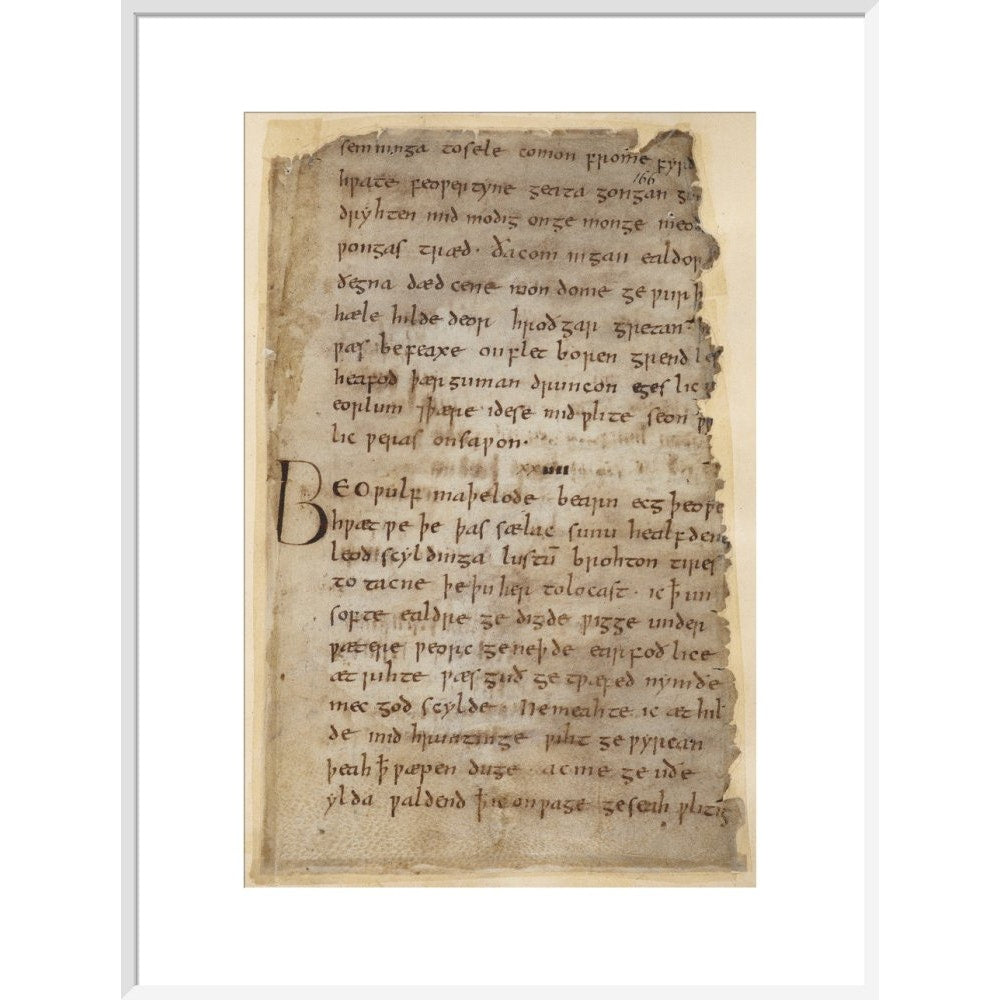 semninga tosele comon frome fyrd
166
hƿate feoƿertyne geata gongan g
dryhten mid modig onge monge meo
ƿongas træd · ða com in gan ealdor
ðegna dæd cene mon dome ge ƿurþ
hæle hilde deor hroðgar gretan
ƿæs be feaxe on flet boren grendles
heafod þær guman druncon egeslic
eorlum ⁊ þære idese mid ƿlite seon
lic ƿeras onsaƿon ·
xxiiii
BEOǷulf maþelode bearn ecg þeoƿe
hƿæt ƿe þe þas sælac sunu healfdene
leod scyldinga lustū brohton tires
to tacne þe þu her tolocast · ic ꝥ un
softe ealdre ge digde ƿigge under
ƿætere ƿeorc ge neþde earfoð lice
æt rihte ƿæs guð ge tƿæfed nymðe
mec god scylde · Ne meahte ic æt hil
de mid hruntinge ƿiht ge ƿyrcan
þeah ꝥ ƿæpen duge · ac me ge uðe
ylda ƿaldend ꝥ ic on ƿage geseah ƿlitig